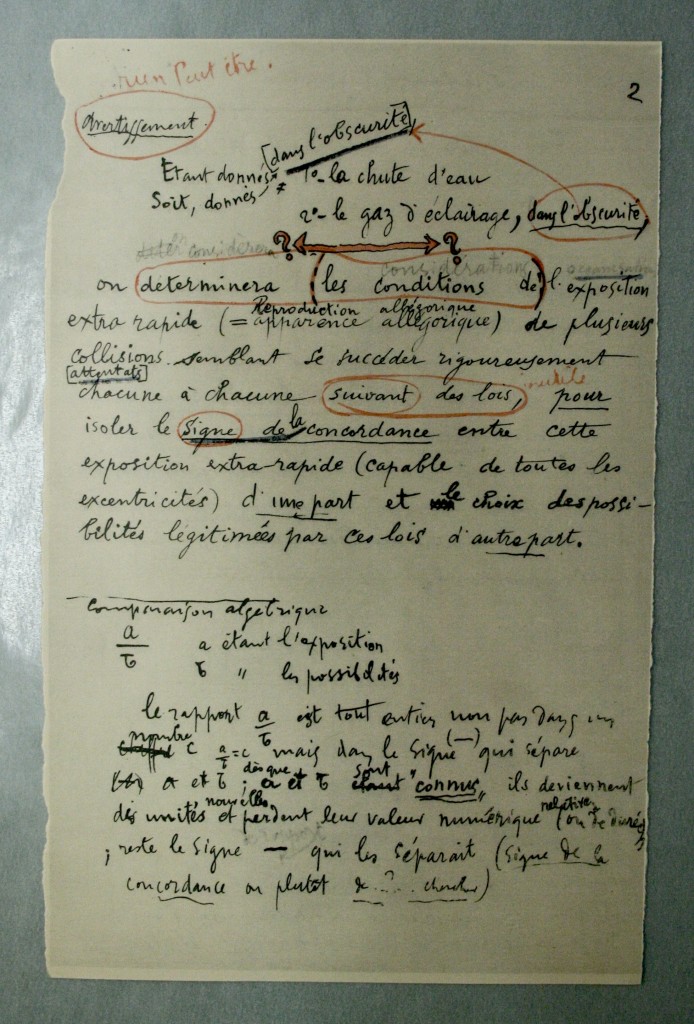 rien Peut être.
2
Avertissement.
[dans l'obscurité]
Etant donnés 1º- la chute d'eau
Soit, donnés
2º- le gaz d'éclairage, dans l'obscurité,
? ?
considérera considérations
on déterminera les conditions de l'exposition
Reproduction allégorique
extra rapide (= apparence allégorique) de plusieurs
collisions semblant se succéder rigoureusement
[attentats]
chacune à chacune suivant des lois, inutile pour
isoler le Signe de la concordance entre cette
exposition extra-rapide (capable de toutes les
excentricités) d'une part et le choix des possi-
bilités légitimées par ces lois d'autre part.
Comparaison algébrique
a
b
a étant l'exposition
b " les possibilités
le rapport a/b est tout entier non pas dans un
nombre c a/b = c mais dans le Signe (—) qui sépare
a et b ; dès que a et b sont "connus" ils deviennent
des unités nouvelles et perdent leur valeur numérique relative (ou de durée)
; reste le Signe — qui les séparait (Signe de la
concordance ou plutôt de ..?... chercher)